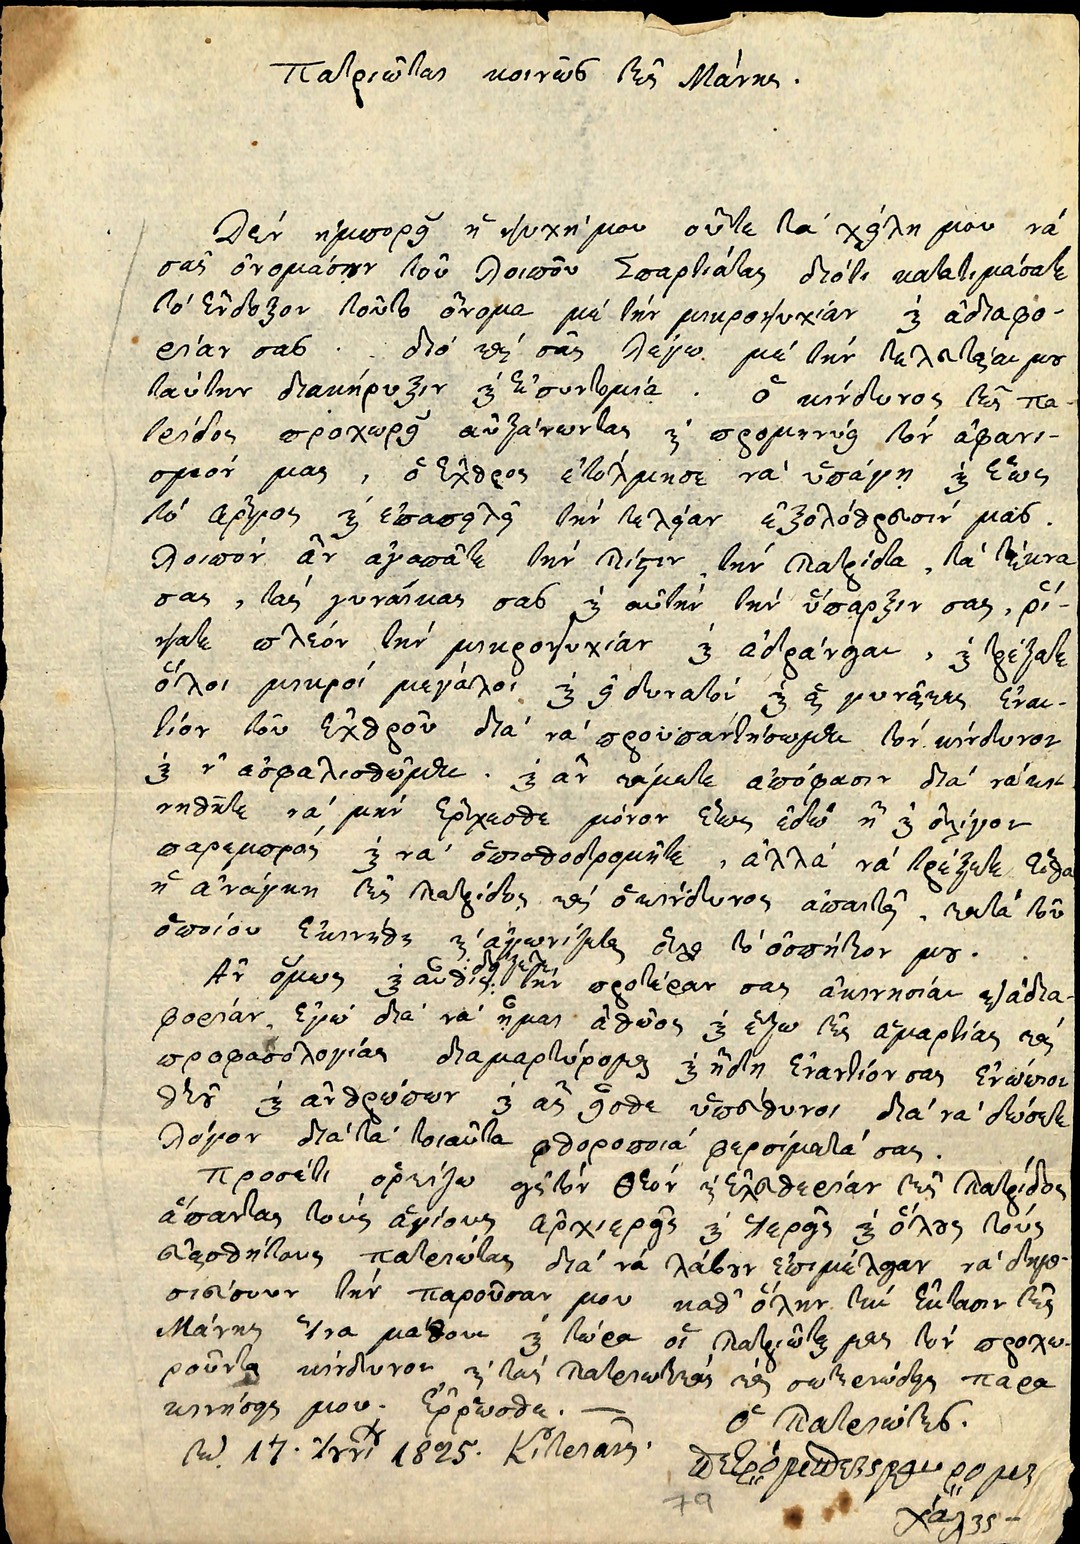 Πατριῶται κοινῶς τῆς Μάνης.
Δέν ἠμπορεῖ ἡ ψυχή μου οὔτε τά χείλη μου νά
σᾶς ὀνομάσουν τοῦ λοιποῦ Σπαρτιάτας διότι κατατιμάσατε
τό ἔνδοξον τοῦτο ὄνομα μέ τήν μικροψυχίαν καί ἀδιαφο-
ρίαν σας. διό καί σᾶς λέγω μέ τήν τελευταίαν μου
ταύτην διακήρυξιν καί ἐν συντομία. ὁ κίνδυνος τῆς πα-
τρίδος προχωρεῖ αὐξάνωντας καί προμηνύει τόν ἀφανι-
σμόν μας, ὁ ἐχθρος ἐτόλμησε νά ὑπάγη καί ἕως
τό Ἄργος καί ἐπαπειλεῖ τήν τελείαν ἐξολόθρευσίν μας.
Λοιπόν ἄν ἀγαπᾶτε τήν Πίστιν, τήν Πατρίδα, τά τέκνα
σας, τάς γυναῖκας σας καί αὐτήν τήν ὕπαρξιν σας, ῥί-
ψατε πλέον τήν μικροψυχίαν καί ἀδράνειαν, καί τρέξατε
ὅλοι μικροί μεγάλοι καί οἱ δυνατοί καί αἱ γυναῖκες ἐναν-
τίον τοῦ ἐχθροῦ διά νά προϋπαντήσωμεν τόν κίνδυνον
καί ν' ἀσφαλισθῶμεν. καί ἄν κάμετε ἀπόφασιν διά νά κι-
νηθῆτε νά μήν ἔρχεσθε μόνον ἕως ἐδῶ ἤ καί ὀλίγον
παρεμπρός καί νά ὀπισθοδρομῆτε, ἀλλά νά τρέξετε ἔνθα
ἡ ἀνάγκη τῆς Πατρίδος καί ὁ κίνδυνος ἀπαιτεῖ, κατά τοῦ
ὁποίου ἐκινήθη καί ἀγωνίζεται ὅλο τό ὀσπήτιον μου.
Ἄν ὅμως καί αὖθις τήν προτέραν σας ἀκινησίαν καί ἀδια-
φορίαν, ἐγώ διά νά ἦμαι ἀθῶος καί ἔξω τῆς ἁμαρτίας καί
προφασολογίας διαμαρτύρομαι καί ἤδη ἐναντίον σας ἐνώπιον
Θεοῦ καί ἀνθρώπων καί ἄς εἶσθε ὑπεύθυνοι διά νά δώσετε
λόγον διά τά τοιαῦτα φθοροποιά φερσίματά σας.
Προσέτι ὁρκίζω εἰς τόν Θεόν καί ἐλευθερίαν τῆς Πατρίδος
ἅπαντας τούς ἁγίους ἀρχιερεῖς καί ἱερεῖς καί ὅλους τούς
εὐαισθήτους πατριώτας διά νά λάβουν ἐπιμέλειαν νά δημο-
σιεύσουν τήν παροῦσαν μου καθ' ὅλην τήν ἔκτασιν τῆς
Μάνης ἵνα μάθουν καί τώρα οἱ Πατριῶται μας τόν προχω-
ροῦντα κίνδυνον καί τάς πατριωτικάς καί σωτηριώδεις παρα
κινήσεις μου. Ἔρρωσθε. —
ὁ Πατριώτης.
τῇ 17. Ἰουνί 1825. Κιτριαῖς.
πετρόμπεης μαυρομι
χάλης –